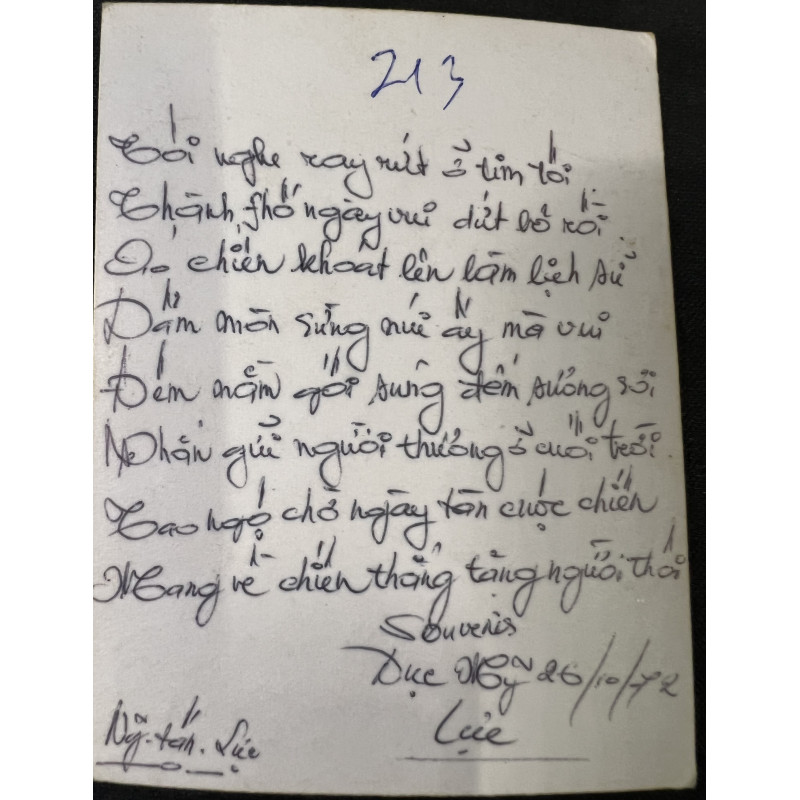 213
Tôi nghe ray rứt ở tim tôi
Thành phố ngày vui dứt bỏ rồi
Áo chiến khoát lên làm lịch sử
Dấm mòn sừng núi ấy mà vui
Đêm nằm gối súng đếm sương rơi
Nhắn gửi người thương ở cuối trời
Tao ngộ chờ ngày tàn cuộc chiến
Mang về chiến thắng tặng người thôi
Souvenir
Dục Mỹ 26/10/72
Lực
Ng~. tấn. Lực